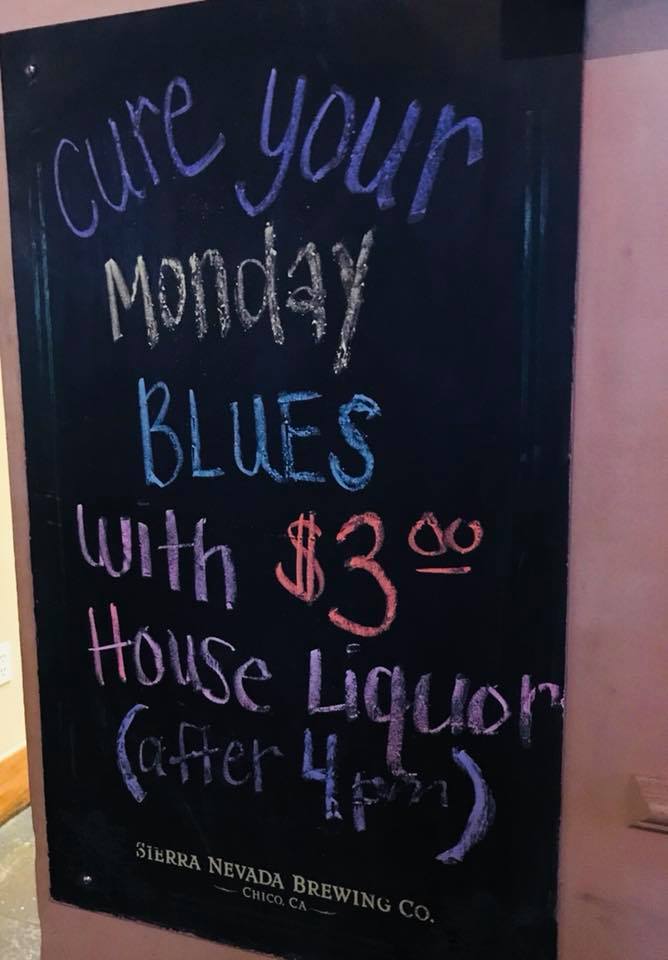 cure your
Monday
BLUES
with $3 00
House Liquor
(after 4pm)
SIERRA NEVADA BREWING CO.
CHICO, CA